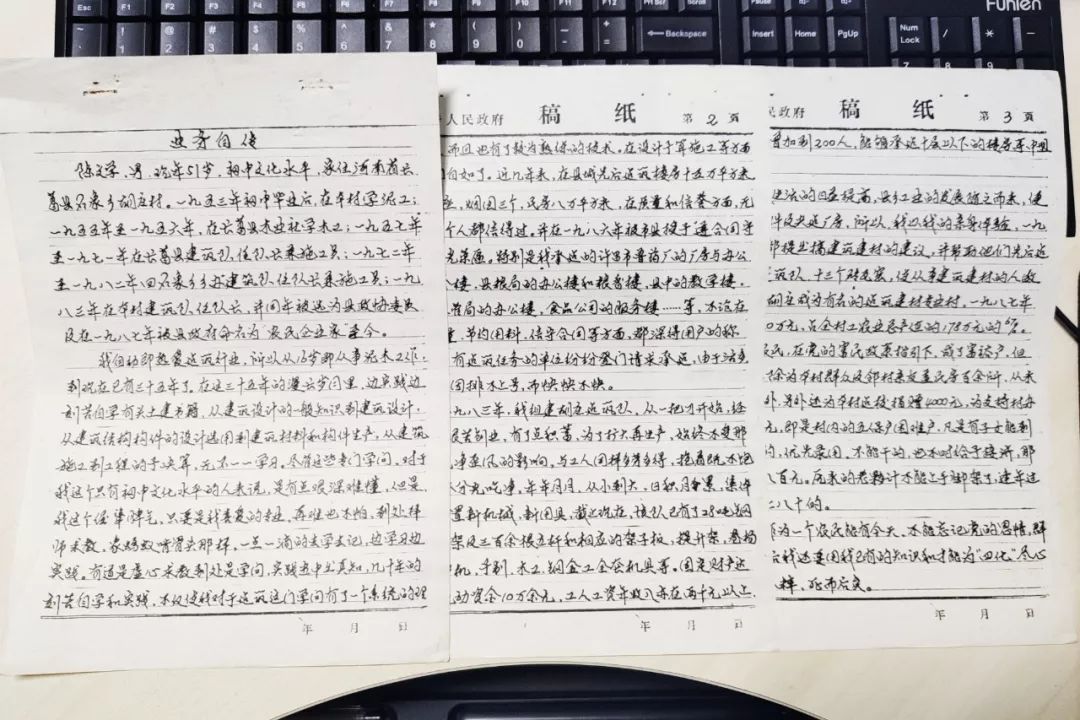 Fuhlen
F1
F2
F3
F4
F5
F6
F7
F8
F9
F10
F11
F12
Backspace
Insert
Home
PgUp
Num Lock
业务自传
陈文学,男,现年51岁,初中文化水平,家住河南省长
葛县石象乡胡庄村。一九五三年初中毕业后,在本村学泥工;
一九五五年至一九五六年,在长葛县木业社学木工;一九五七年
至一九七一年在长葛县建筑队,任队长兼施工员;一九七二年
至一九八二年回石象乡乡办建筑队任队长兼施工员;一九
八三年在本村建筑队,任队长,并同年被选为县政协委员
及在一九八七年被县政府命名为“农民企业家”至今。
我自幼即热爱建筑行业,所以从16岁即从事泥木工作,
到现在已有三十五年了。在这三十五年的漫长岁月里,边实践边
刻苦自学有关土建书籍,从建筑设计的一般知识到建筑设计,
从建筑结构构件的设计选用到建筑材料和构件生产,从建筑
施工到工程的予决算,无不一一学习,尽管这些专门学问,对于
我这个只有初中文化水平的人来说,是有点艰深难懂,但是,
我这个倔犟脾气,只要是我喜爱的专业,再难也不怕,到处拜
师求教,象蚂蚁啃骨头那样,一点一滴的去学去记,边学习边
实践。有道是虚心求教到处是学问,实践当中出真知,几十年的
刻苦自学和实践,不仅使我对于建筑这门学问有了一个系统的理
年 月 日
人民政府 稿纸 第2页
而且也有了较为熟练的技术。在设计予算施工等方面
自如了。近几年来,在县城先后建筑楼房十五万平方米
烟囱三个,民房八万平方米,在质量和信誉方面,无
个人都信得过,并在一九八六年被市县授于“重合同守
光荣匾,特别是我承建的许昌市兽药厂的厂房与办公
楼,县粮局的办公楼和粮香楼,县中的教学楼,
管局的办公楼,食品公司的服务楼……等,不论在
节约用料,信守合同等方面,都深得用户的称
有建筑任务的单位纷纷登门请求承建,由于活多
因排不上号,而怏怏不快。
九八三年,我组建胡庄建筑队,从一把刀开始,经
艰苦创业,有了点积蓄,为了扩大再生产,始终不受那
风的影响,与工人同样多劳多得,抱着既不
分光吃净,年年月月,从小到大,日积月累,集资
置新机械,新用具,截止现在,该队已有了
架及三百余根立杆和相应的架子板,提升架,卷扬
机,手刨,木工,钢金工全套机具等。固定财产达
动资金10万余元,工人工资年收入亦在两千元以上
年 月 日
民政府 稿纸 第3页
增加到200人,能够承建十层以下的楼房
生活的日益提高,县乡工业的发展随之而来,使
所以,我以我的亲身体验,一九
即提出搞建筑建材的建议,并帮助他们先后建
筑队,十三个砖瓦窑,使从事建筑建材的人数
胡庄成为有名的建筑建材专业村,一九八七年
0万元,占全村工农业总产值的178万元的%。
农民,在党的富民政策指引下,成了富裕户,但
除为本村群众及邻村亲友盖民房百余间,从未
外,另外还为本村返校捐赠4000元,为支持村办
元,即是村内的五保户困难户,凡是有子女能到
内,优先录用,不能干的,也不时给予接济,那
百元。历来的老教计不能上手脚架了,逢年过
二八十的。
为一个农民能有今天,不能忘记党的恩情,群
我还要用我已有的知识和才能为“四化”尽心
样,死而后矣。
年 月 日